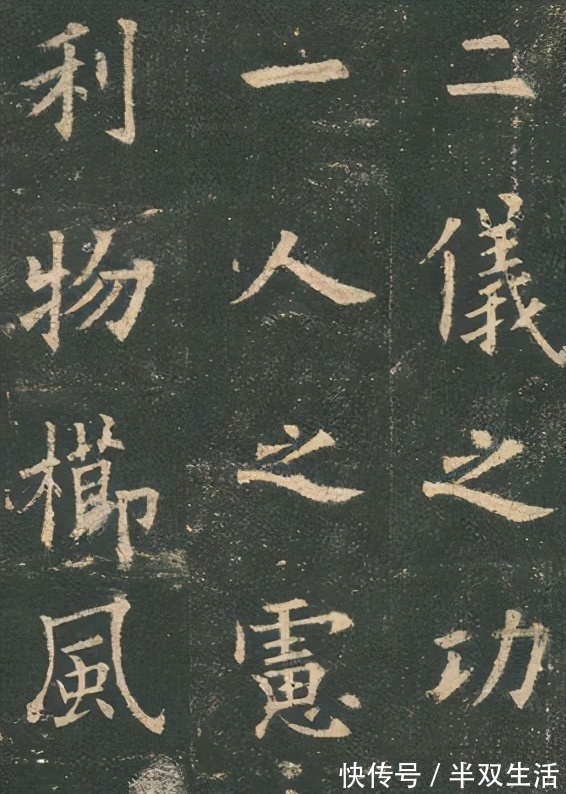 二儀之功
一人之慮
利物櫛風
快传号 / 半双生活